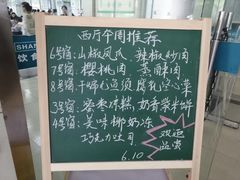 西厅本周推荐
6号窗：山椒凤爪、辣椒炒肉
7号窗：樱桃肉、蒸酥肉
8号窗：干煸包菜 腐乳空心菜
3号窗：蜜枣凉糕 奶香紫米饼
4号窗：美味椰奶冻
巧克力吐司
欢迎
品尝
6.10
SHAN
饮食